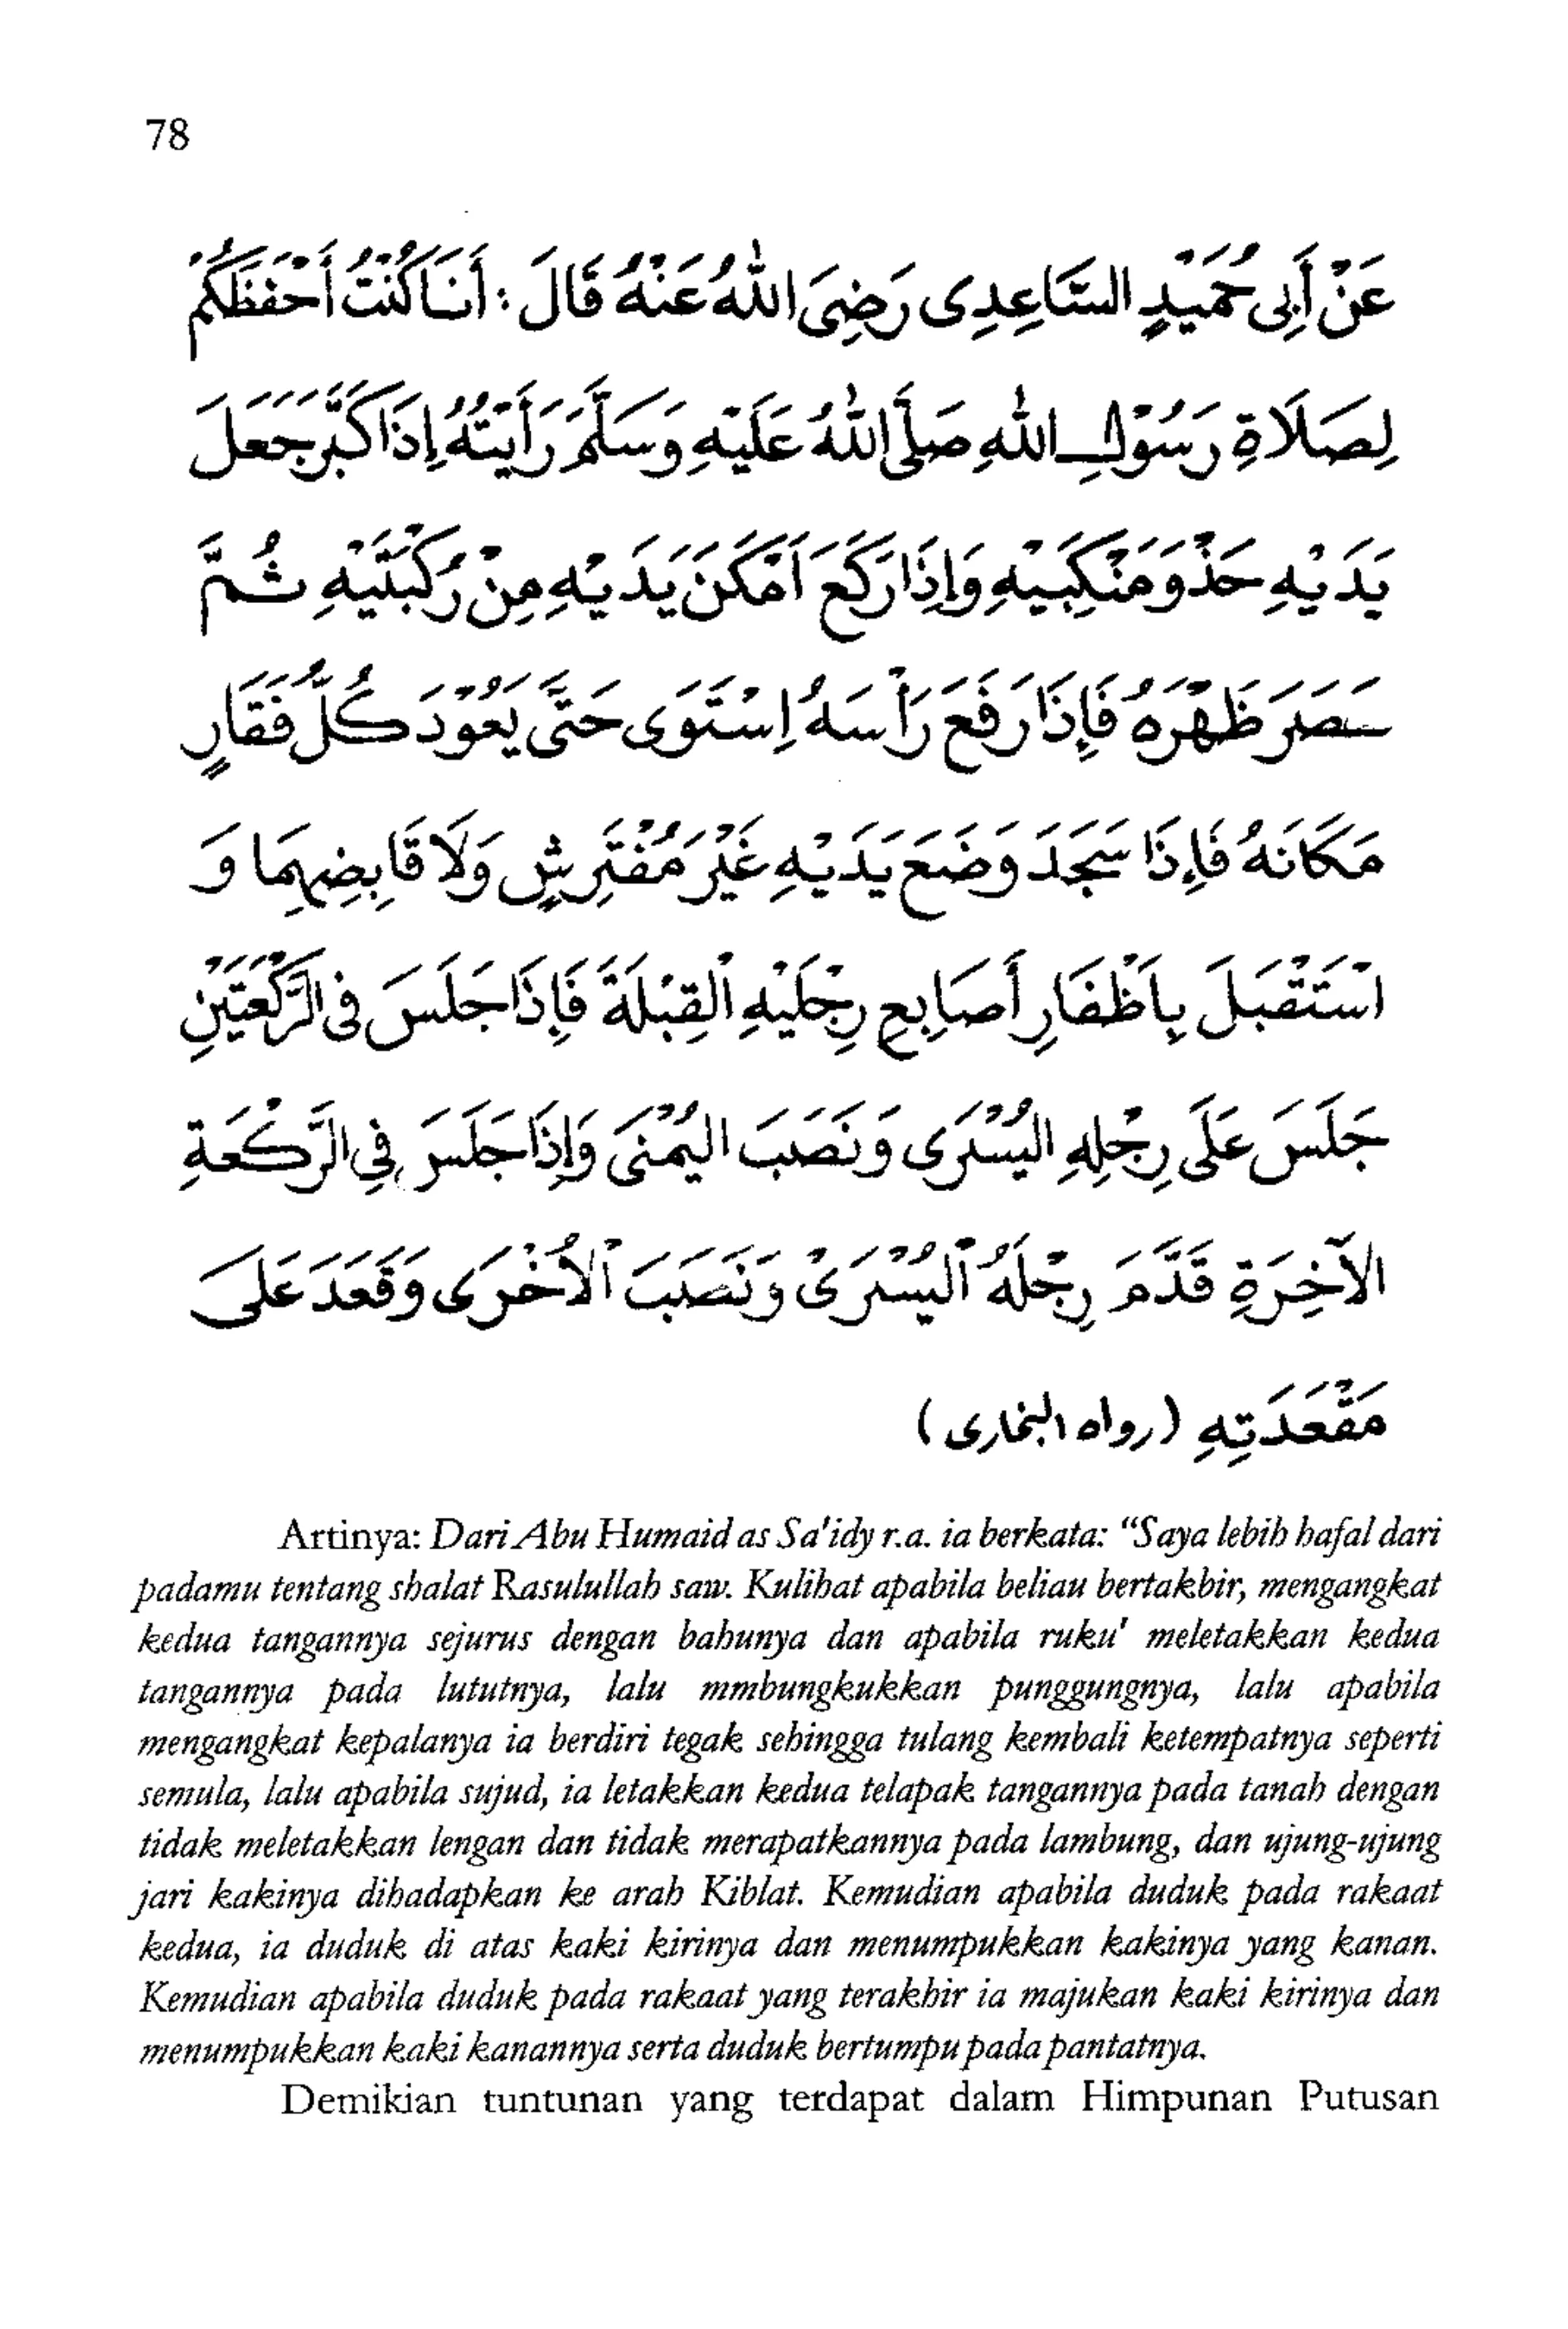 78
عَنْ أَبِى حُمَيْدٍ السَّاعِدِى رَضِىَ اللهُ عَنْهُ قَالَ : أَنَا كُنْتُ أَحْفَظَكُمْ
لِصَلَاةِ رَسُوْلِ اللهِ صَلَّى اللهُ عَلَيْهِ وَسَلَّمَ رَأَيْتُهُ إِذَا كَبَّرَ جَعَلَ
يَدَيْهِ حَذْوَ مَنْكِبَيْهِ وَإِذَا رَكَعَ اَمْكَنَ يَدَيْهِ مِنْ رُكْبَتَيْهِ ثُمَّ
هَصَرَ ظَهْرَهُ فَإِذَا رَفَعَ رَأْسَهُ اِسْتَوَى حَتَّى يَعُوْدَ كُلُّ فَقَارٍ
مَكَانَهُ فَإِذَا سَجَدَ وَضَعَ يَدَيْهِ غَيْرَ مُفْتَرِشٍ وَلَا قَابِضِهِمَا وَ
اسْتَقْبَلَ بِأَظْفَارِ أَصَابِعِ رِجْلَيْهِ الْقِبْلَةَ فَإِذَا جَلَسَ فِى الرَّكْعَتَيْنِ
جَلَسَ عَلَى رِجْلِهِ الْيُسْرَى وَنَصَبَ الْيُمْنَى وَإِذَا جَلَسَ فِى الرَّكْعَةِ
الآخِرَةِ قَدَّمَ رِجْلَهُ الْيُسْرَىْ وَنَصَبَ اْلأُخْرَى وَقَعَدَ عَلَى
مَقْعَدَتِهِ (رواه البخارى)
Artinya: Dari Abu Humaid as Sa'idy r.a. ia berkata: “Saya lebih hafal dari
padamu tentang shalat Rasulullah saw. Kulihat apabila beliau bertakbir, mengangkat
kedua tangannya sejurus dengan bahunya dan apabila ruku' meletakkan kedua
tangannya pada lututnya, lalu mmbungkukkan punggungnya, lalu apabila
mengangkat kepalanya ia berdiri tegak sehingga tulang kembali ketempatnya seperti
semula, lalu apabila sujud, ia letakkan kedua telapak tangannya pada tanah dengan
tidak meletakkan lengan dan tidak merapatkannya pada lambung, dan ujung-ujung
jari kakinya dihadapkan ke arah Kiblat. Kemudian apabila duduk pada rakaat
kedua, ia duduk di atas kaki kirinya dan menumpukkan kakinya yang kanan.
Kemudian apabila duduk pada rakaat yang terakhir ia majukan kaki kirinya dan
menumpukkan kaki kanannya serta duduk bertumpu pada pantatnya.
Demikian tuntunan yang terdapat dalam Himpunan Putusan